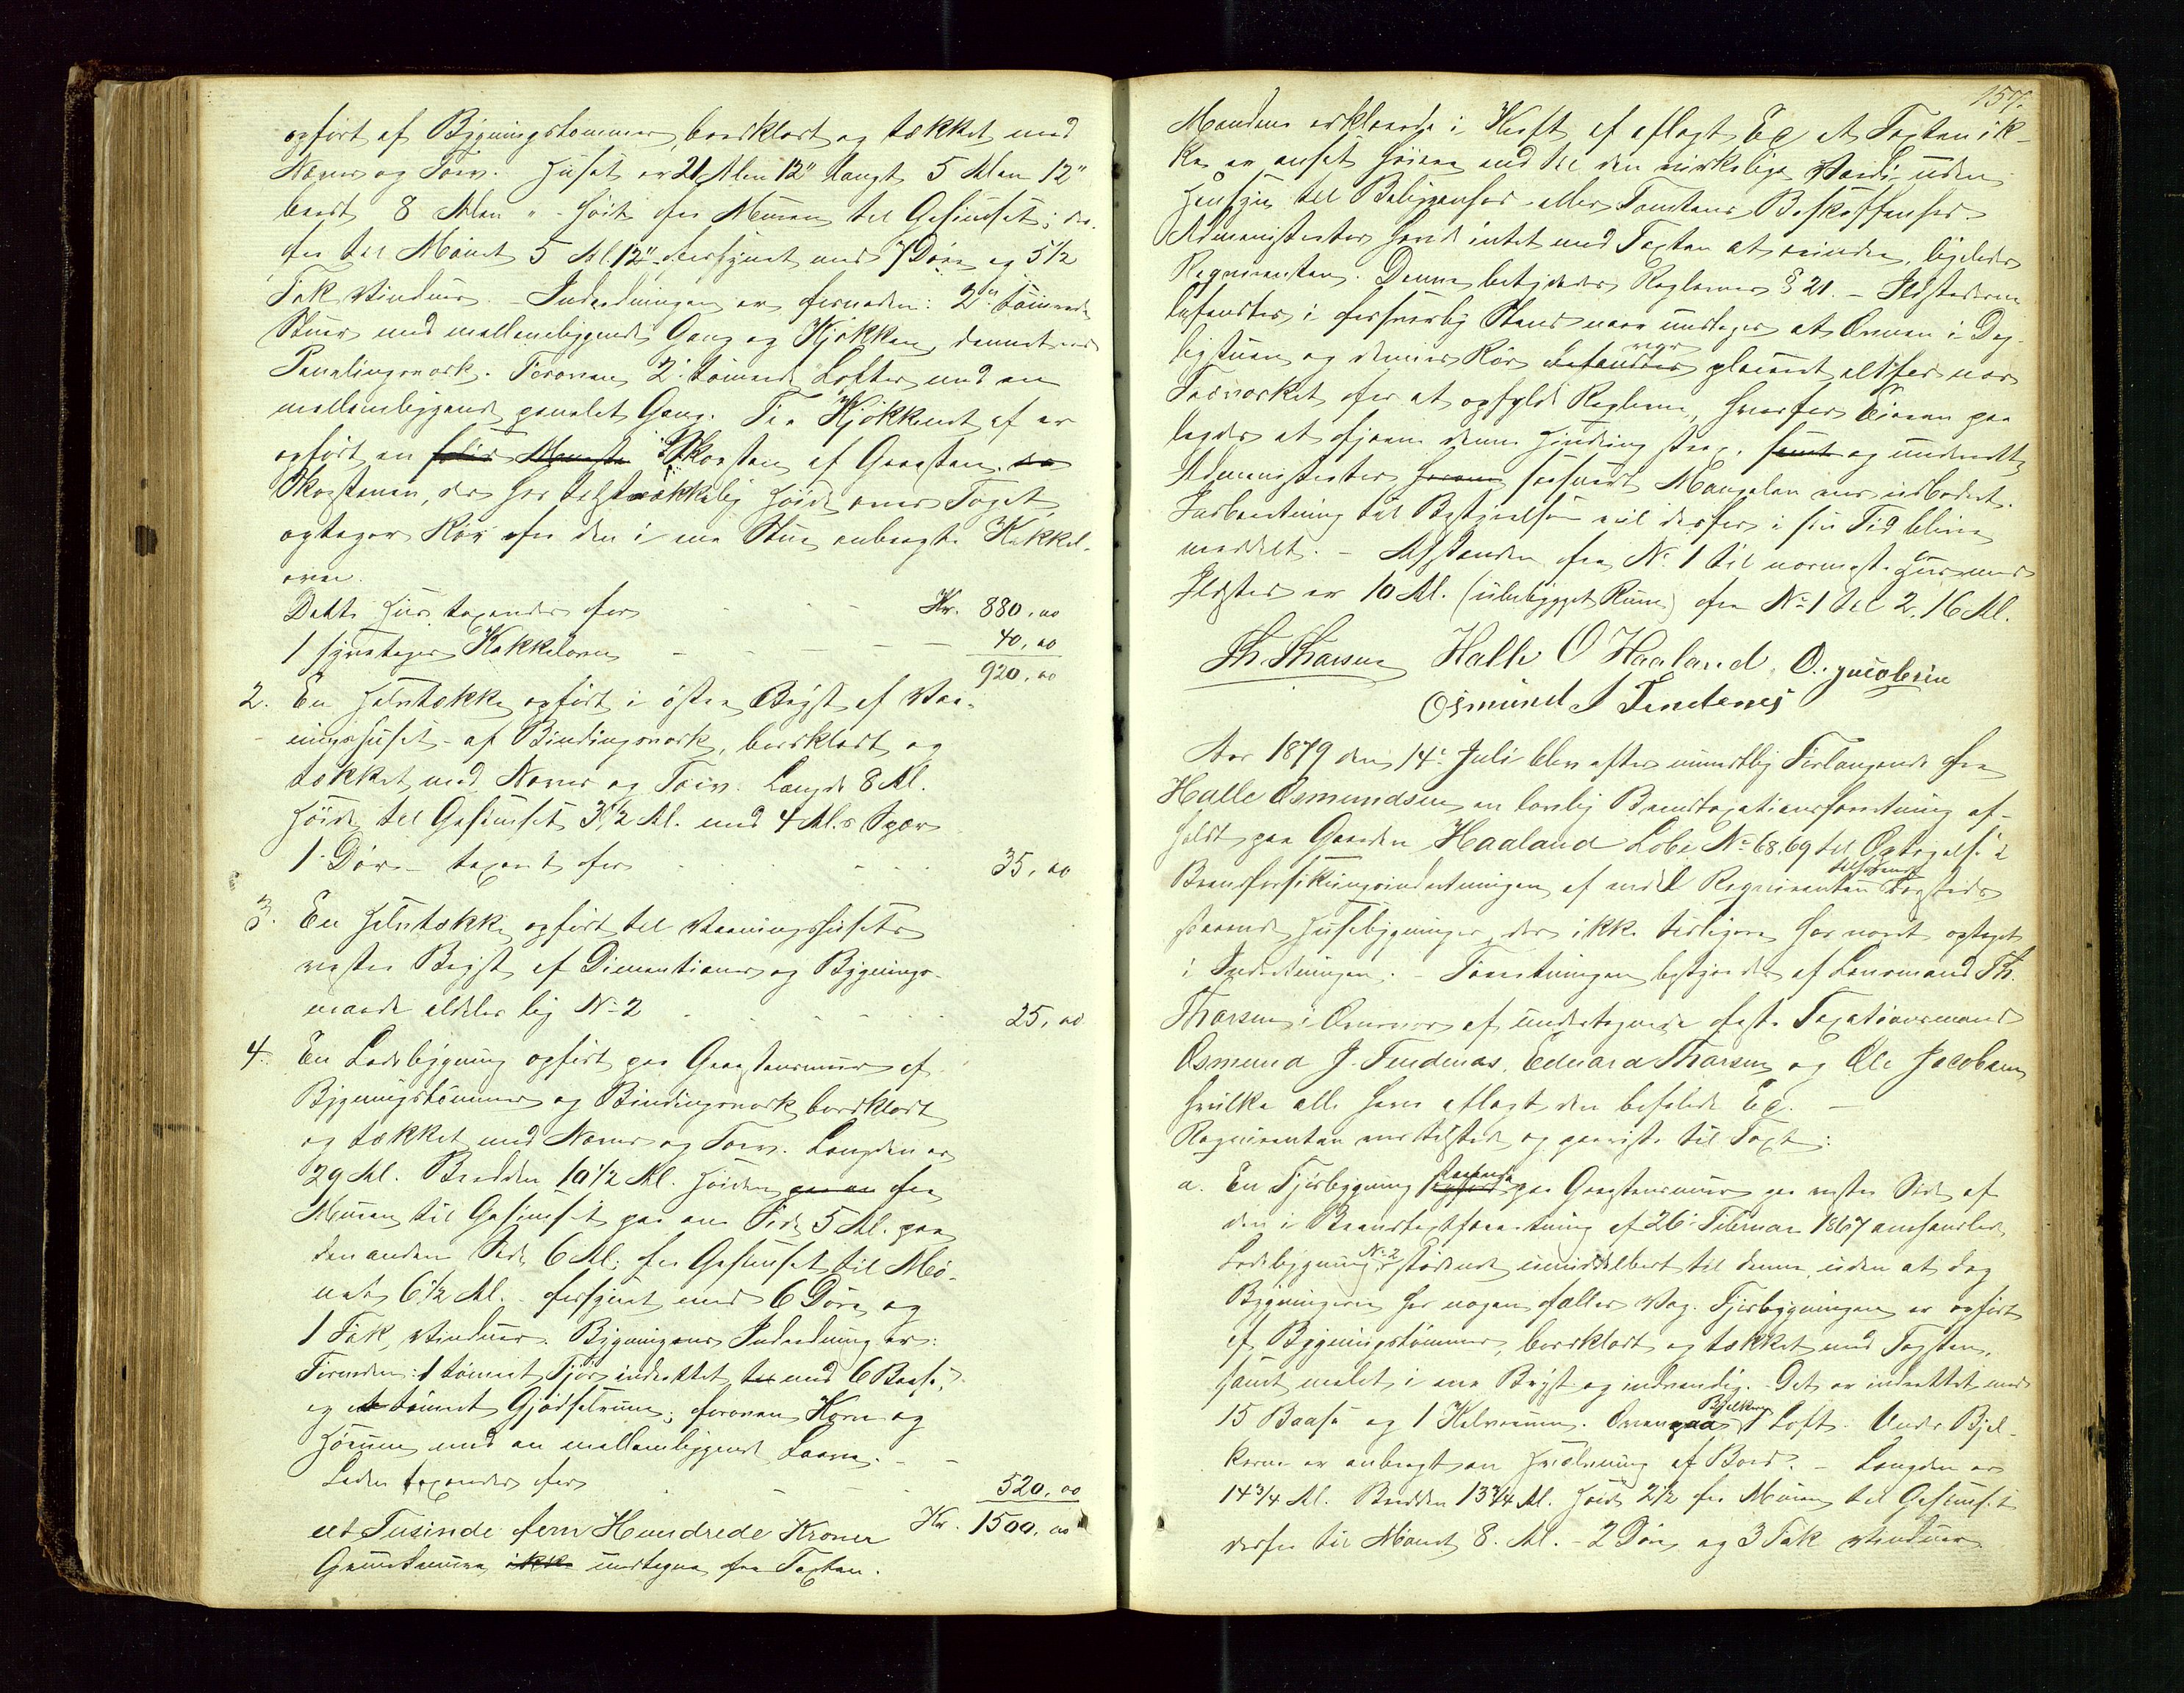 opført af Bygningstømmer, bordklædt og tækket med
Næver og Torv. Huset er 21 Alen 12" langt 5 Alen 12"
bredt 8 Alen " - høit fra Muren til Gesimset; der-
fra til Mønet 5 Al. 12" forsynet med 7 Døre og 5 1/2
Fak Vinduer. - Indredningen er forneden: 2de tømrede
Stuer med mellemliggende Gang og Kjøkken, dannet ved
Panelingsværk. Foroven 2 tømrede Lofter med en
mellemliggende panelet Gang. Fra Kjøkkenet af er
opført en Skorsten af Graasten.
Skorstenen, der har tilstrækkelig Høide over Taget,
optager Rør fra den i ene Stue anbragte Kakkel-
ovn.
Dette Hus taxeredes for - - - Kr. 880,00
1 Kakkelovn - - - - 40,00
920,00
2. En Halvtække opført i østre Bryst af Vaa-
ningshuset - af Bindingsværk, bordklædt og
tækket med Næver og Torv. Længde 8 Al.
Høide til Gesimset 3 1/2 Al. med 4 Al.s Spær
1 Dør - taxeret for - - - 35,00
3. En Halvtække opført til Vaaningshusets
vestre Bryst af Dimentioner og Bygnings-
maade aldeles lig No 2 - - - 25,00
4. En Ladebygning opført paa Graastensmur af
Bygningstømmer og Bindingsværk bordklædt
og tækket med Næver og Torv. Længden er
29 Al. Bredden 10 1/2 Al. Høiden paa en fra
Muren til Gesimset paa ene Side 5 Al. paa
den anden Side 6 Al; fra Gesimset til Mø-
net 6 1/2 Al. - forsynet med 6 Døre og
1 Fak Vinduer. Bygningens Indredning er:
Forneden: 1 tømret Fjøs indrettet til med 6 Baase,
og et tømret Gjødselrum; foroven Korn og
Hørum med en mellemliggende Laave. - -
Laden taxeredes for - - - 520,00
eet Tusinde fem Hundrede Kroner Kr. 1500,00
Grundmurene ikke undtagne fra Taxten.
157.
Mændene erklærede i Kraft af aflagt Ed at Taxten ik-
ke er ansat høiere end til den virkelige Værdi uden
Hensyn til Beliggenhed eller Tomtens Beskaffenhed.
Administrator havde intet mod Taxten at erindre, ligeledes
Reqvirenten. Denne betydedes Reglernes § 21. - Ildstederne
befandtes i forsvarlig Stand naar undtages at Ovnen i Dag-
ligstuen og dennes Rør befandtes var placeret altfor nær
Træværket for at opfylde Reglerne, hvorfor Eieren paa-
lagdes at fjerne denne Hindring strax, samt og underrette
Administrator herom saasnart Mangelen var udbedret.
Indberetning til Bestyrelsen vil derfor i sin Tid blive
meddelt. - Afstanden fra No 1 til nærmeste Huus med
Ildsted er 10 Al. (ubebygget Rum) fra No 1 til 2. 16 Al.
Th. Tharsen Halle O Haaland, O. Jacobsen
Osmund J Tendenes
Aar 1879 den 14de Juli blev efter mundtlig Forlangende fra
Halle Osmundsen en lovlig Brandtaxationsforretning af-
holdt paa Gaarden Haaland Løbe No 68.69 til Optagelse i
Brandforsikringsindretningen af endel Reqvirenten tilhørende
Husebygninger, der ikke tidligere har været optaget
i Indretningen. - Forretningen bestyredes af Lensmand Th.
Tharsen i Overvær af undertegnede faste Taxationsmænd
Osmund J. Tendenæs, Eduard Tharsen og Ole Jacobsen
hvilke alle have aflagt den befalede Ed. -
Reqvirenten var tilstede og paaviste til Taxt:
a. En Fjøsbygning staaende paa Graastensmur paa vestre Side af
den i Brandtaxtforretning af 26de Februar 1867 omhandlede
Ladebygning No 2, stødende umiddelbart til denne, uden at dog
Bygningerne har nogen fælles Væg. Fjøsbygningen er opført
af Bygningstømmer, bordklædt og tækket med Tagsten,
samt malet i ene Bryst og indvendig. Det er indrettet med
15 Baase og 1 Kalverum. Ovenpaa Bjelkerne 1 Loft. Under Bjel-
kerne er anbragt en Hvælvning af Bord. - Længden er
14 3/4 Al. Bredden 13 3/4 Al. Høide 2 1/2 fra Muren til Gesimset
derfra til Mønet 8. Al. - 2 Døre og 3 Fak Vinduer